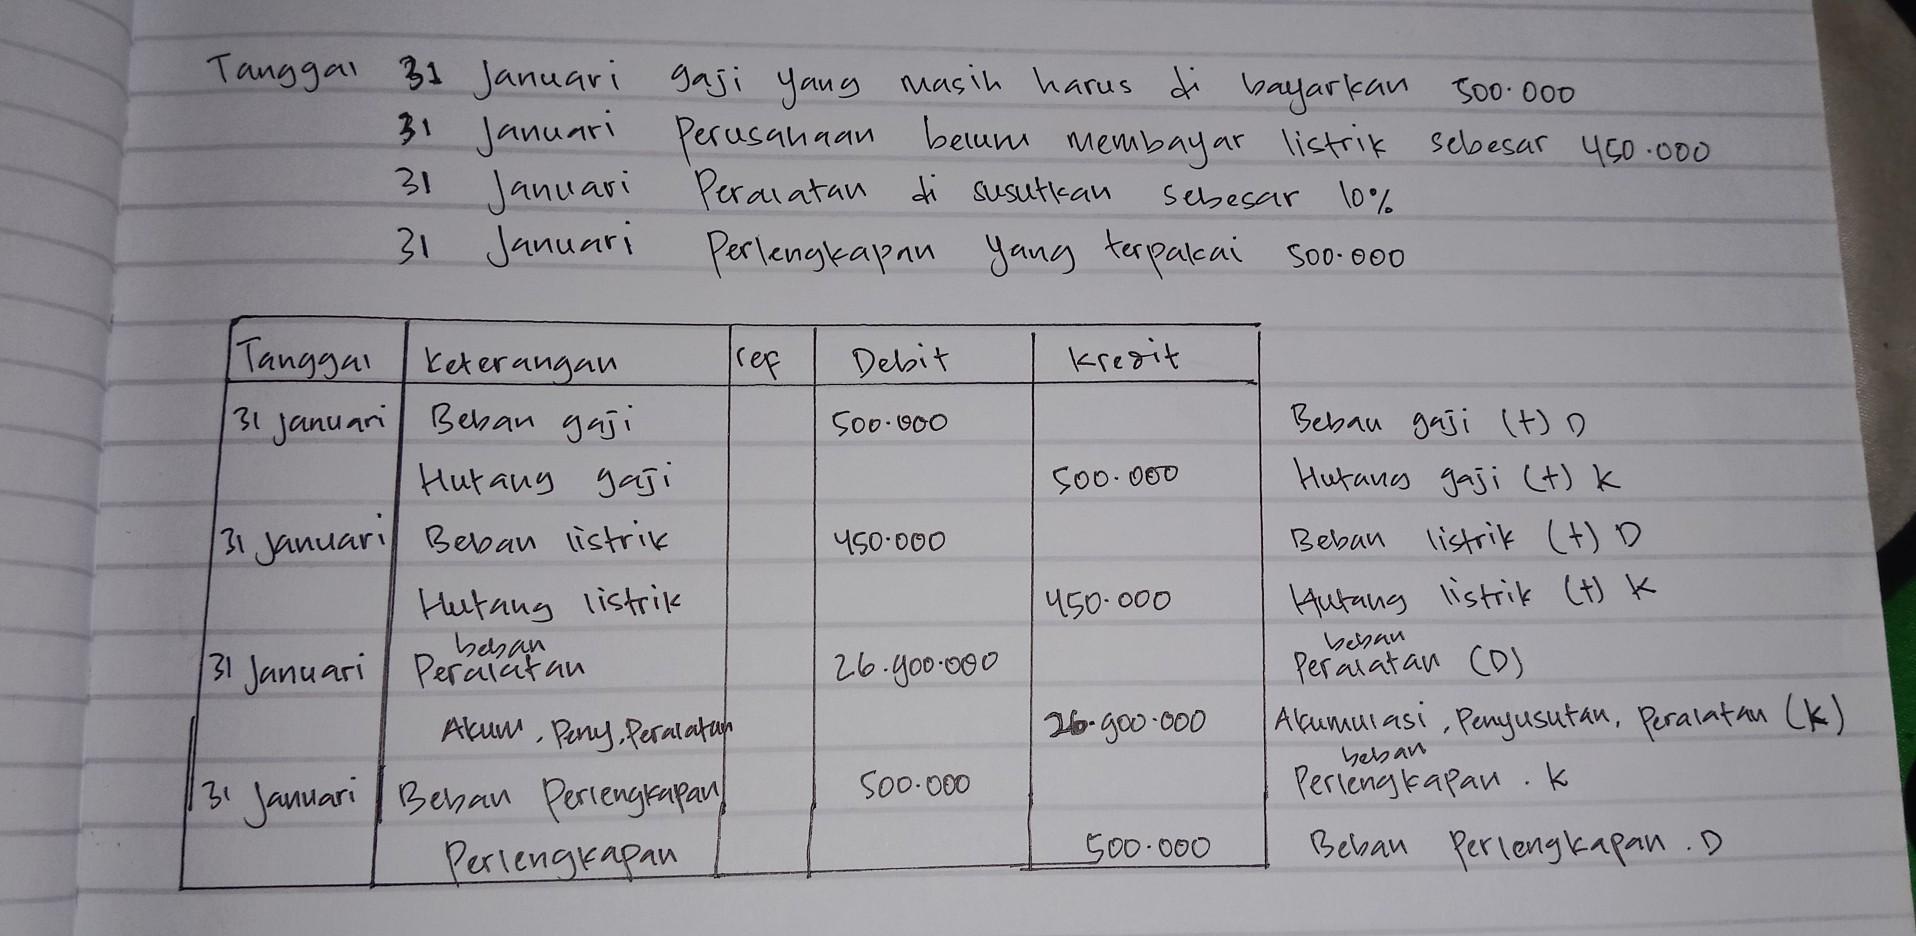 Tanggal 31 Januari gaji yang masih harus di bayarkan 500.000
31 Januari Perusahaan belum membayar listrik sebesar 450.000
31 Januari Peralatan di susutkan sebesar 10%
31 Januari Perlengkapan yang terpakai 500.000
Tanggal Keterangan ref Debit Kredit
31 Januari Beban gaji 500.000 Beban gaji (+) D
Hutang gaji 500.000 Hutang gaji (+) K
31 Januari Beban listrik 450.000 Beban listrik (+) D
Hutang listrik 450.000 Hutang listrik (+) K
beban beban
31 Januari Peralatan 26.900.000 Peralatan (D)
Akum, Peny, Peralatan 26.900.000 Akumulasi, Penyusutan, Peralatan (K)
beban
31 Januari Beban Perlengkapan 500.000 Perlengkapan . K
Perlengkapan 500.000 Beban Perlengkapan . D